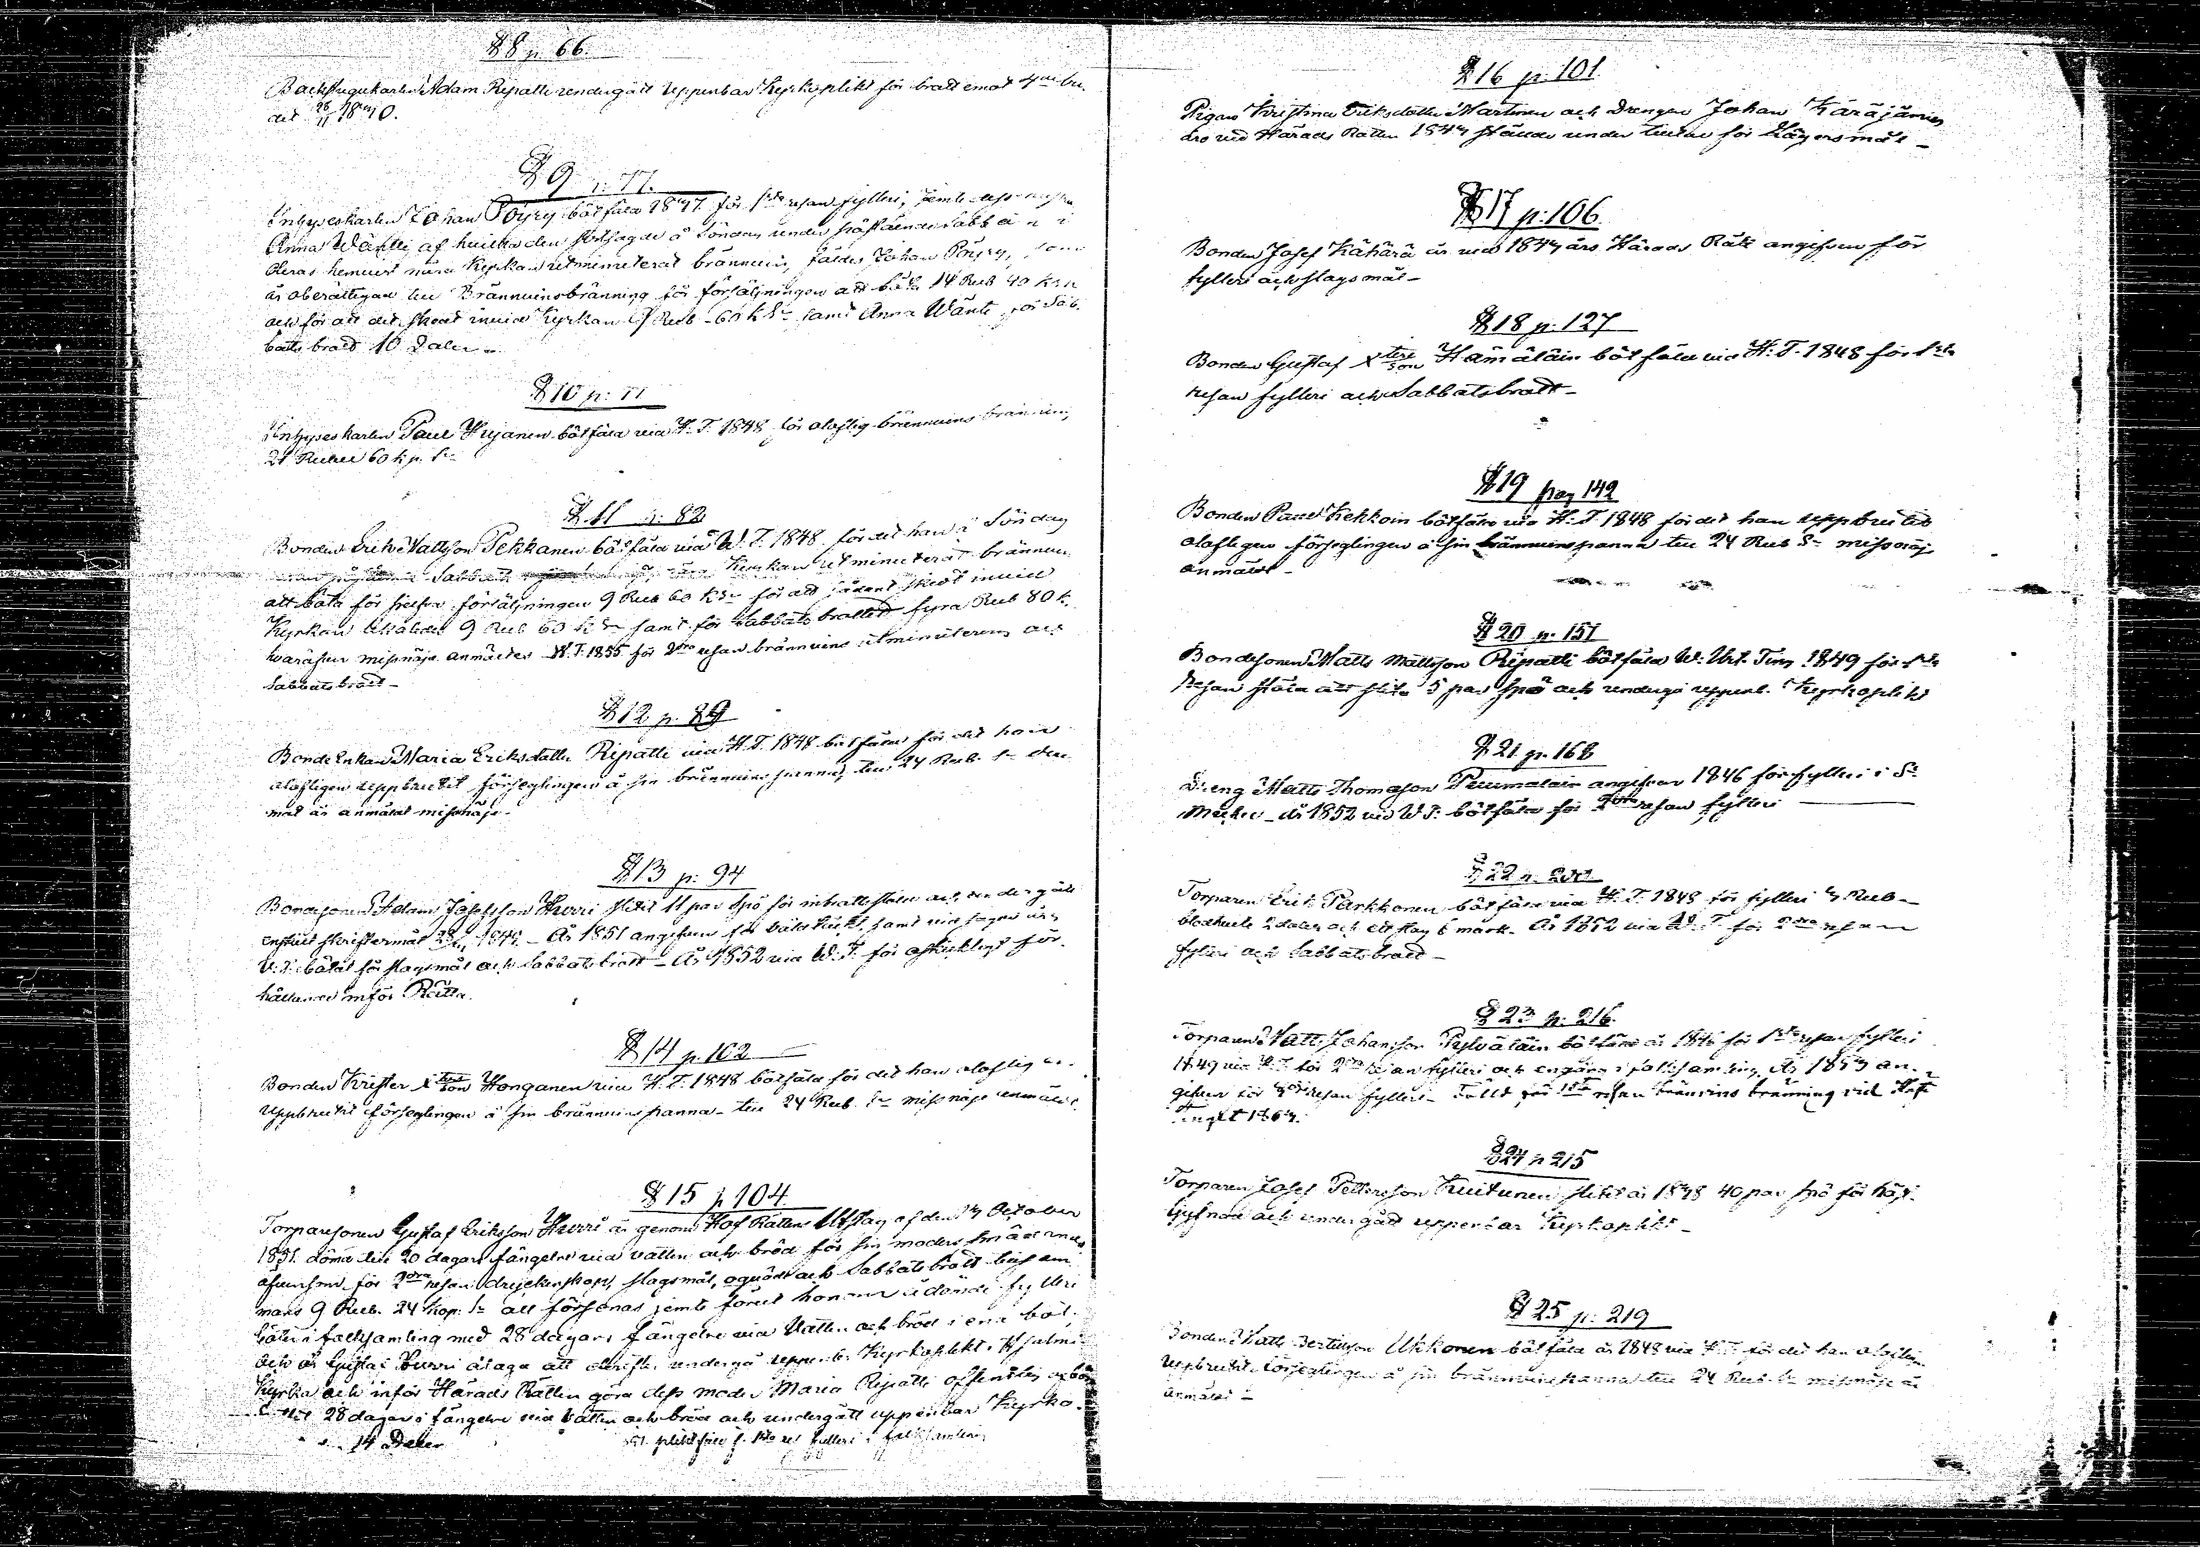 § 8 p. 66.
Backstugukarlen Adam Ripatti undergått uppenbar Kyrkoplikt för brott emot 4de bu-
det 28/11 1840.
§ 9 p. 77.
Inhyseskarlen Johan Pöyry bötfäld 1847 för 1sta resan fylleri, jemte
Anna Wäntti, af hvilka den förstsagde å Söndag under påstående Sabbat i
deras hemvist nära Kyrkan utminuterat brännvin, fäldes Johan Pöyry, som
är oberättigad till Brännvinsbränning för försäljningen att böta 14 Rub 40 kop
och för att det skedt invid Kyrkan 9 Rub 60 k Sr samt Anna Wäntti för Sab-
bats brott 10 Daler.
§ 10 p: 77
Inhyseskarlen Paul Kujanen bötfäld vid H.T. 1848 för olaflig brännvins bränning
21 Rubel 60 kp. Sr
§ 11 p: 82
Bonden Erik Mattsson Pekkanen bötfäld vid W.T. 1848 för det han å Söndag
Sabbath Kyrkan utminuterat brännvin
att böta för sjelfva försäljningen 9 Rub 60 k Sr för att sådant skedt invid
Kyrkan likaledes 9 Rub 60 k Sr samt för Sabbats brottet fyra Rub 80 k.
hvaröfver missnöje anmäldes W.T. 1855 för 2dra resan brännvins utminutering och
Sabbatsbrott –
§ 12 p. 89
Bonde Enkan Maria Eriksdotter Ripatti vid H.T. 1848 bötfäld för det hon
olofligen uppbrutit förseglingen å sin brännvins panna, till 24 Rub. Sr der
mot är anmäldt missnöje.
§ 13 p: 94
Bondesonen Adam Josefsson Hurri slitit 11 par Spö för inbrottsstöld och undergått
enskilt skriftermål 1849. – År 1851 angifven för samt vid sagde års
V.T. bötat för slagsmål och Sabbatsbrott – År 1852 vid W.T. för oskickligt för-
hållande inför Rätta.
§ 14 p. 102
Bonden Krister Xterson Honganen vid H.T. 1848 bötfäld för det han olofligen
uppbrutit förseglingen å sin brännvins panna – till 24 Rub. Sr missnöje anmäldt.
§ 15 p 104
Torparesonen Gustaf Eriksson Hurri är genom Hof Rättens Utslag af den 14 October
1851 dömd till 20 dagars fängelse vid vatten och bröd för sin moders smädande
äfvensom för 2dra resan dryckenskap, slagsmål, oqväde och Sabbatsbrott till sam-
mans 9 Rub. 24 kop: Sr att försonas jemte förut honom ådömde fylleri
böter i folksamling med 28 dagars fängelse vid Vatten och bröd i ena bot,
och är Gustaf Hurri ålagd att derefter undergå uppenb. Kyrkoplikt i Hjulmi-
Kyrka och inför Härads Rätten göra dess moder Maria Ripatti offentlig afbön
28 dagar i fängelse vid Vatten och bröd och undergått uppenbar Kyrko-
14 Daler plikt fäld f. 1sta res fylleri i folksamling
§ 16 p. 101.
Pigan Kristina Eriksdotter Martinen och Drengen Johan Käräjämies
äro vid Härads Rätten 1844 stälde under tilltal för Lägersmål –
§ 17 p: 106.
Bonden Josef Kähärä är vid 1844 års Härads Rätt angifven för
fylleri och slagsmål –
§ 18 p. 127
Bonden Gustaf Xterson Hämäläin bötfäld vid H.T. 1848 för 1sta
resan fylleri och Sabbatsbrott –
§ 19 pag 142
Bonden Paul Kekkoin bötfäld vid H.T 1848 för det han uppbrutit
olofligen förseglingen å sin brännvinspanna till 24 Rub Sr missnöje
anmäldt –
§ 20 p. 151
Bondesonen Matts Mattsson Ripatti bötfäld W. Urt. Ting 1849 för 1sta
Resan stöld att slita 5 par Spö och undergå uppenb. Kyrkoplikt
§ 21 p. 168
Dreng Matts Thomasson Puumalain angifven 1846 för fylleri i St
Michel – år 1852 vid W.T. bötfäld för 2dra resan fylleri
§ 22 p. 200
Torparen Erik Parkkonen bötfäld vid H.T. 1848 för fylleri 4 Rub –
blodvite 2 daler och ett slag 6 mark. År 1852 vid W.T. för 2dra resan
fylleri och Sabbatsbrott –
§ 23 p. 216.
Torparen Matts Johansson Pylväläin bötfäld år 1846 för 1sta resan fylleri
1849 vid H.T. för 2dra resan fylleri och engång i folksamling. År 1854 an-
gifven för resan fylleri – Fälld för 1sta resan bränvins bränning vid Höst
Tinget 1864.
§ 24 p 215
Torparen Josef Pettersson Kuitunen slitit år 1848 40 par Spö för
tjufnad och undergått uppenbar Kyrkoplikt –
§ 25 p: 219
Bonden Matts Bertilsson Ukkonen bötfäld år 1848 vid H.T. för det han olofligen
uppbrutit förseglingen å sin brännvinspanna till 24 Rub. Sr missnöje är
anmäldt –